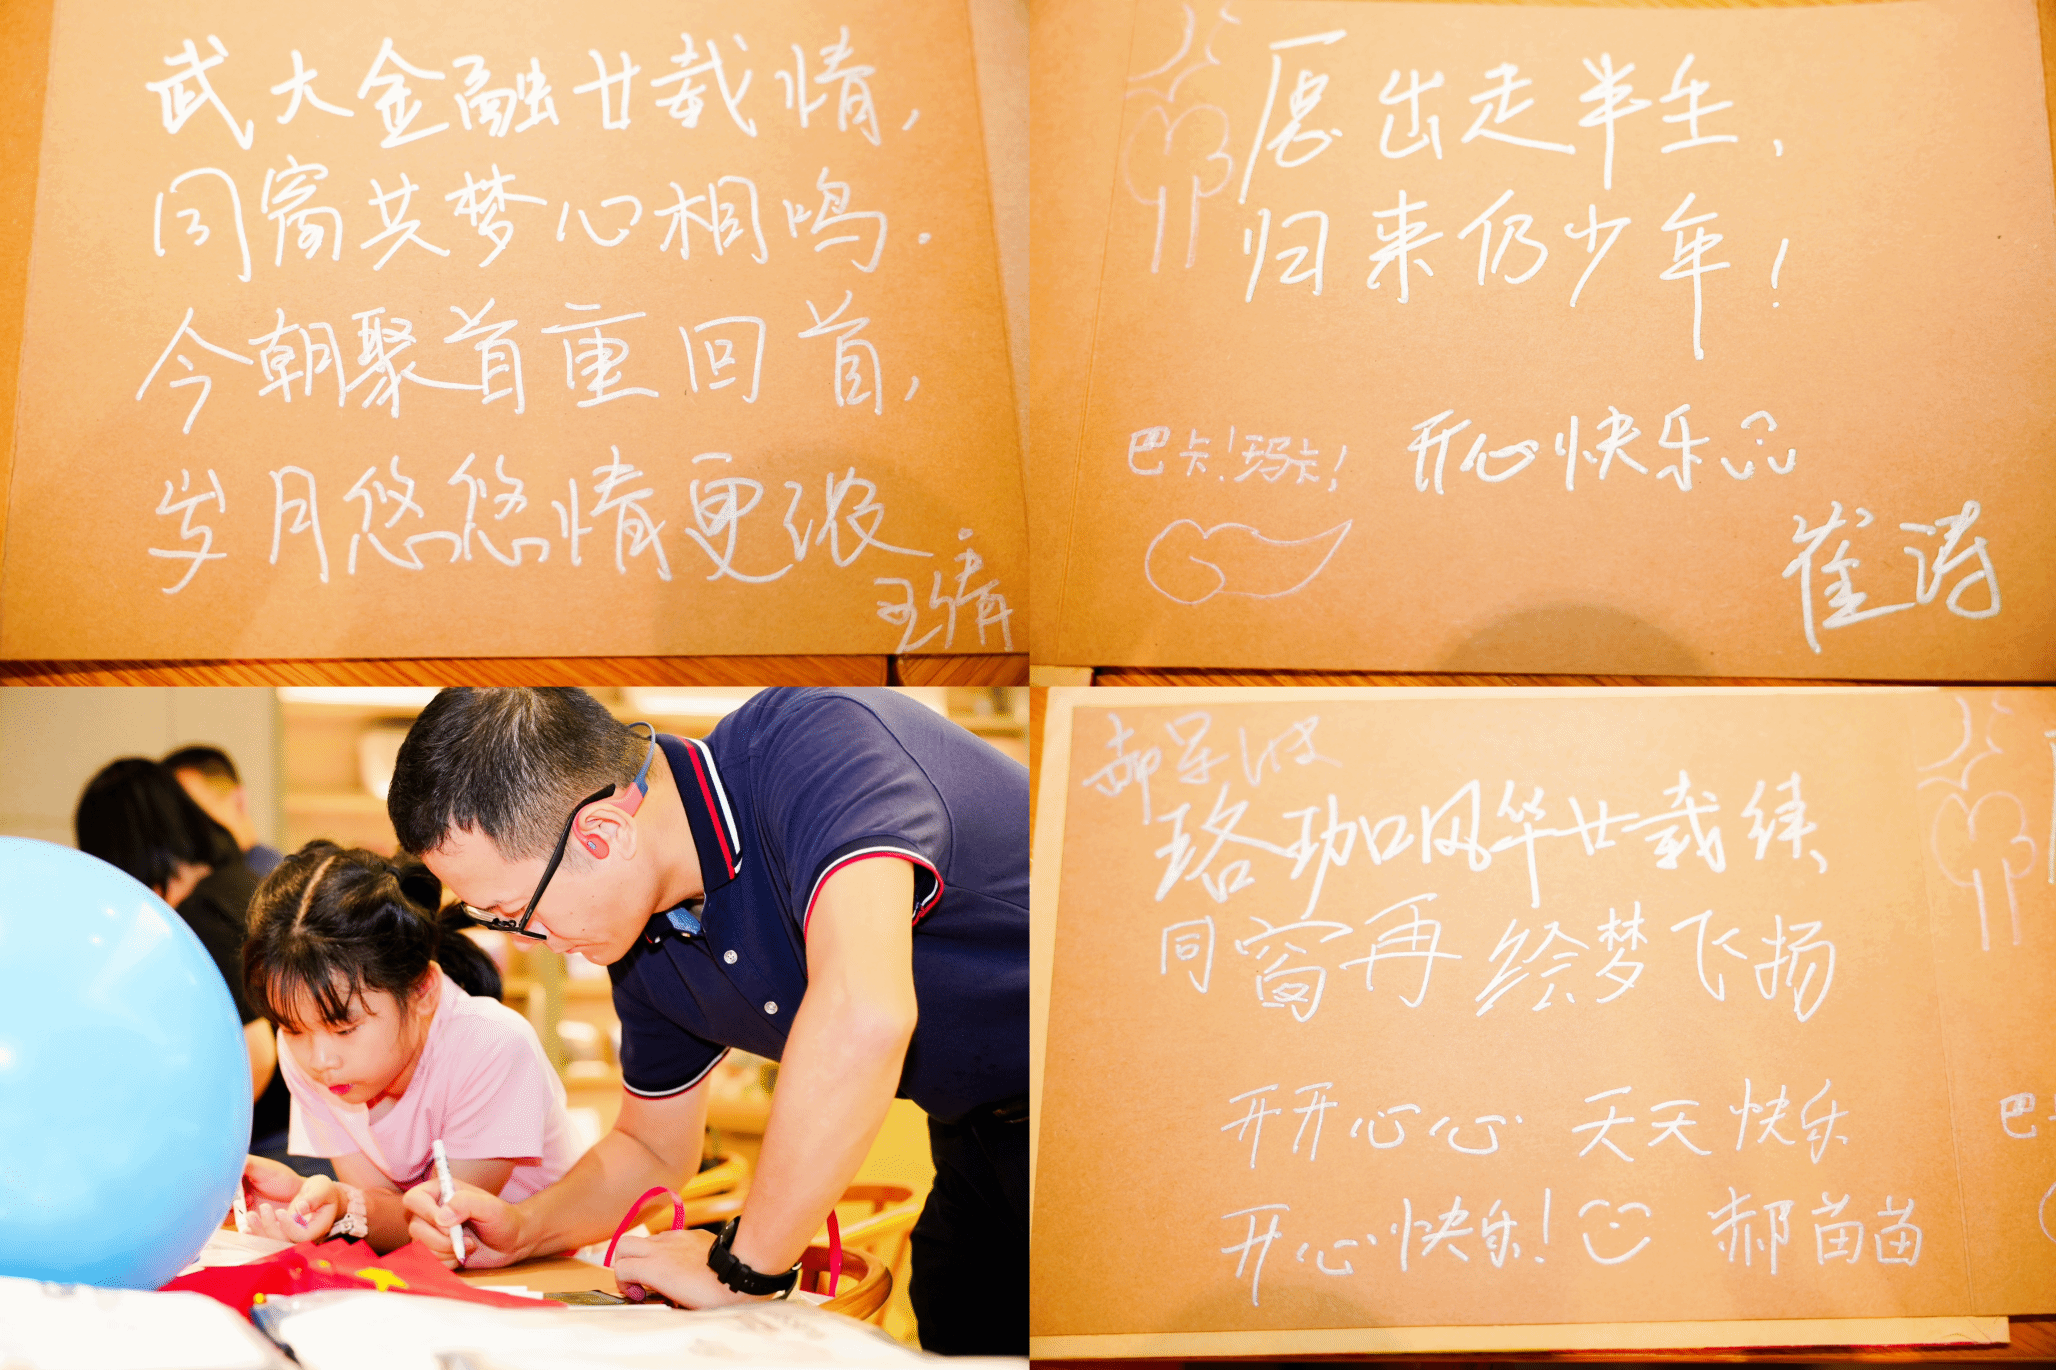 武大金融廿载情,
同窗共梦心相鸣.
今朝聚首重回首,
岁月悠悠情更浓.
王倩
愿出走半生,
归来仍少年!
巴卡!玛卡!
开心快乐
崔涛
郝星波
珞珈风华廿载续、
同窗再绘梦飞扬
开开心心 天天快乐
开心快乐! 郝苗苗
巴